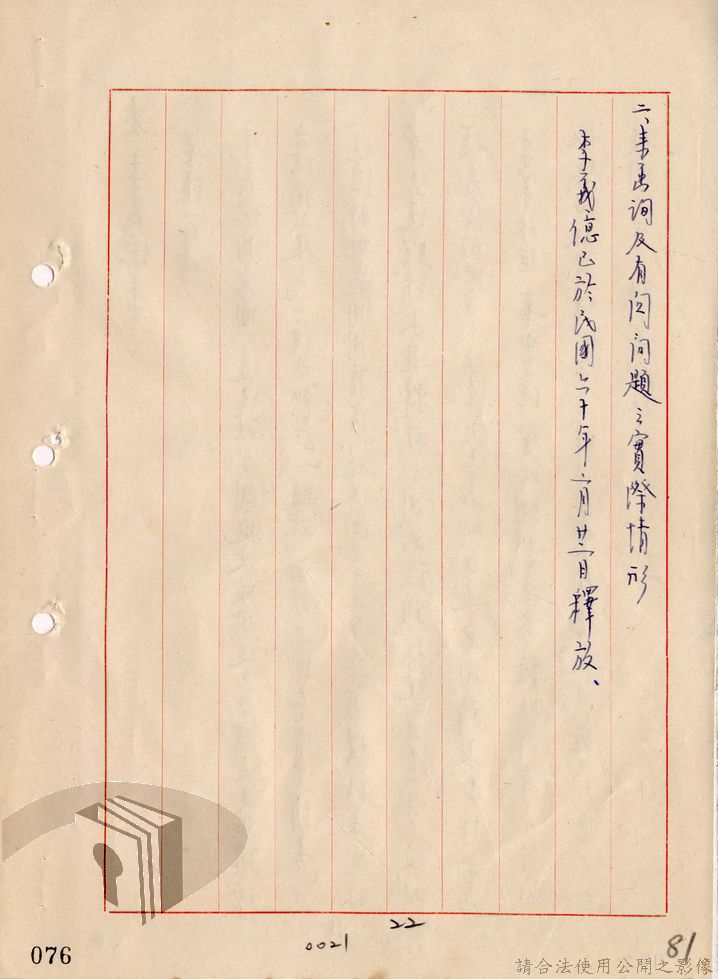 二、來函詢及有関问題之實際情形
李義億已於民國六十年二月廿二日釋放、
22
0021
81
076
請合法使用公開之影像